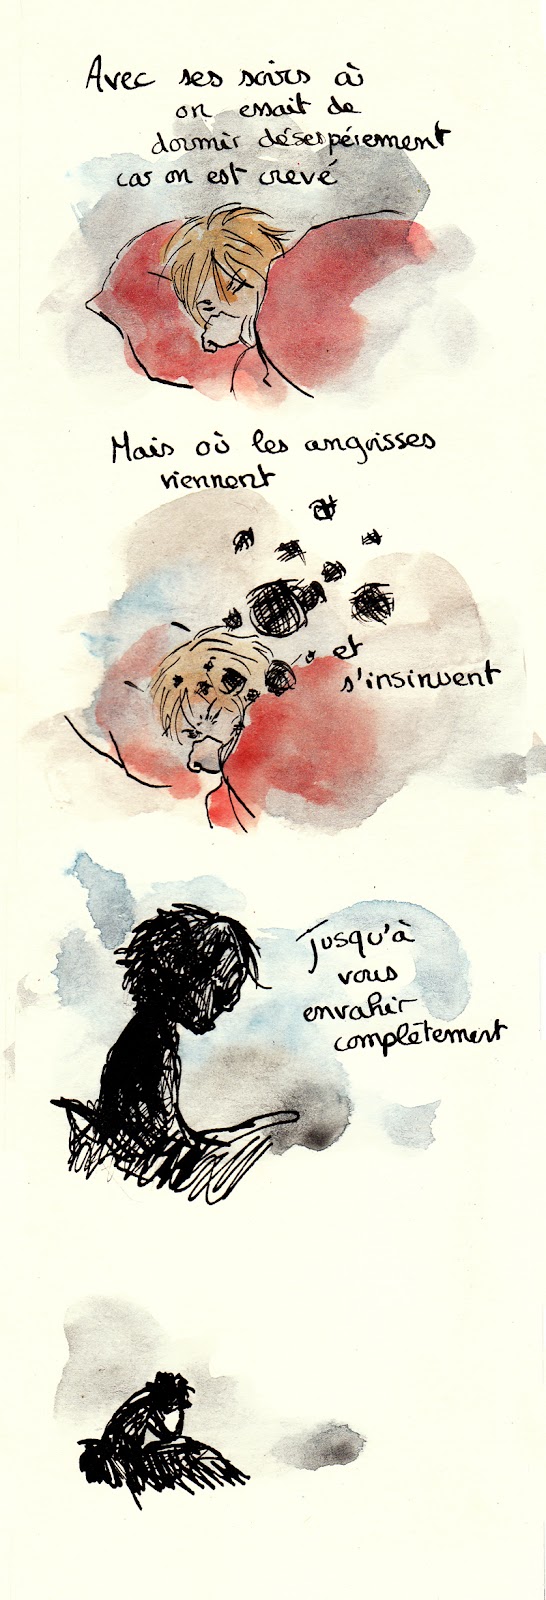 Avec ses soirs où
on essait de
dormir désespérement
car on est crevé
Mais où les angoisses
viennent
et
s'insinuent
jusqu'à
vous
envahir
complètement